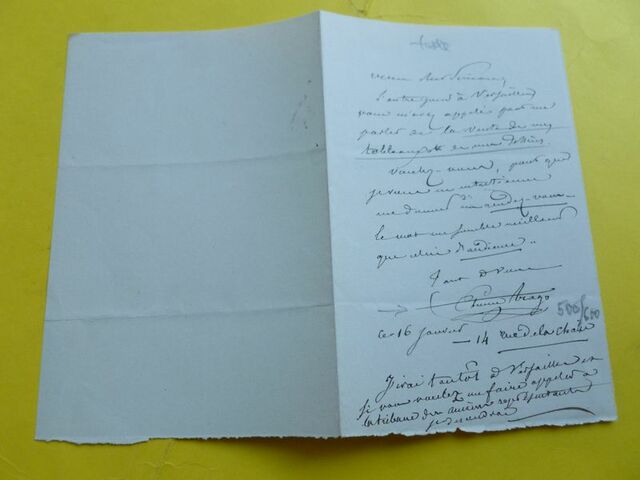 L'autre jour à Versailles
vous m'avez appelé pour me
parler de la vente de mes
tableaux et de mes
voulez-vous, pour que
je vous en entretienne
me donner un rendez-vous
le mot me semble meilleur
que celui d'audience ..
Tout à vous
Etienne Arago
500/600
ce 16 janvier - 14 rue de la chaise
J'irai tantôt à Versailles et
si vous voulez me faire appeler à
la tribune des anciens représentants
je descendrai